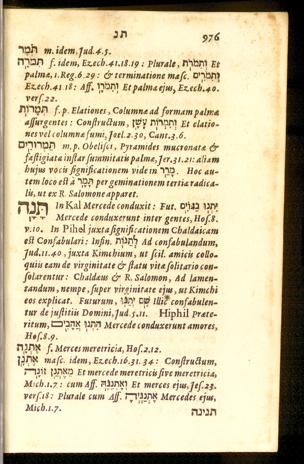 תנ 976
תֹּמֶר m. idem, Jud. 4.5.
תִּמֹרָה f. idem, Ezech. 41.18.19: Plurale, וְתִמֹרֹת Et
palmæ, 1. Reg. 6.29: & terminatione masc. וְתִמֹרִים
Ezech. 41 18: Aff. וְתִמֹרָו Et palmæ ejus, Ezech. 40.
vers. 22.
תִּמֲרוֹת f. p. Elationes, Columnæ ad formam palmæ
assurgentes: Constructum, וְתִמְרוֹת עָשָׁן Et elatio-
nes vel columnæ fumi, Joel. 2.30, Cant. 3.6.
תַּמְרוּרִים m. p. Obelisci, Pyramides mucronatæ &
fastigiatæ instar summitatis palmæ, Jer. 31.21: aliam
hujus vocis significationem vide in מָרַר. Hoc au-
tem loco est à תָּמָר per geminationem tertiæ radica-
lis, ut ex R. Salomone apparet.
תָּנָה In Kal Mercede conduxit: Fut. יִתְנוּ בַגּוֹיִם
Mercede conduxerunt inter gentes, Hos. 8.
v. 10. In Pihel juxta significationem Chaldaicam
est Confabulari: Infin. לְתַנּוֹת Ad confabulandum,
Jud. 11.40, juxta Kimchium, ut scil. amicis collo-
quiis eam de virginitate & statu vitæ solitario con-
solarentur: Chaldæus & R. Salomon, Ad lamen-
tandum, nempe, super virginitate ejus, ut Kimchi
eos explicat. Futurum, שָׁם יְתַנּוּ Illic confabulen-
tur de justitiis Domini, Jud. 5.11. Hiphil Præte-
ritum, הִתְנוּ אֲהָבִים Mercede conduxerunt amores,
Hos. 8.9.
אֶתְנָה f. Merces meretricia, Hos. 2.12.
אֶתְנַן masc. idem, Ezech. 16.31.34: Constructum,
מֵאֶתְנַן זוֹנָה Et mercede meretricis sive meretricia,
Mich. 1.7: cum Aff. וְאֶתְנַנָּהּ Et merces ejus, Jes. 23.
vers. 18: Plurale cum Aff. אֶתְנַנֶּיהָ Mercedes ejus,
Mich. 1.7.
תנינה